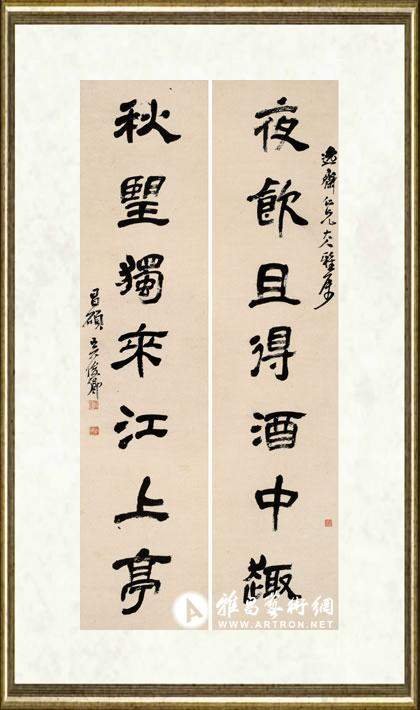 夜飲且得酒中趣
逸齋仁兄大人雅屬
秋望獨來江上亭
昌碩吳俊卿
雅昌藝術網
WWW.ARTRON.NET